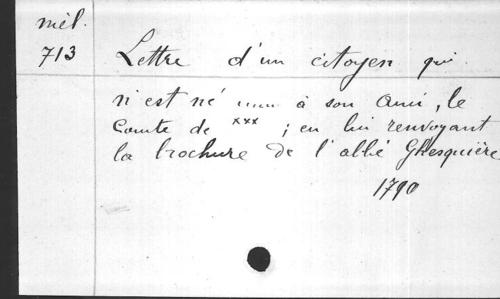 mél.
713
Lettre d'un citoyen qui
n'est né ...... à son ami, le
Comte de xxx ; en lui renvoyant
la brochure de l'abbé Ghesquière
1790